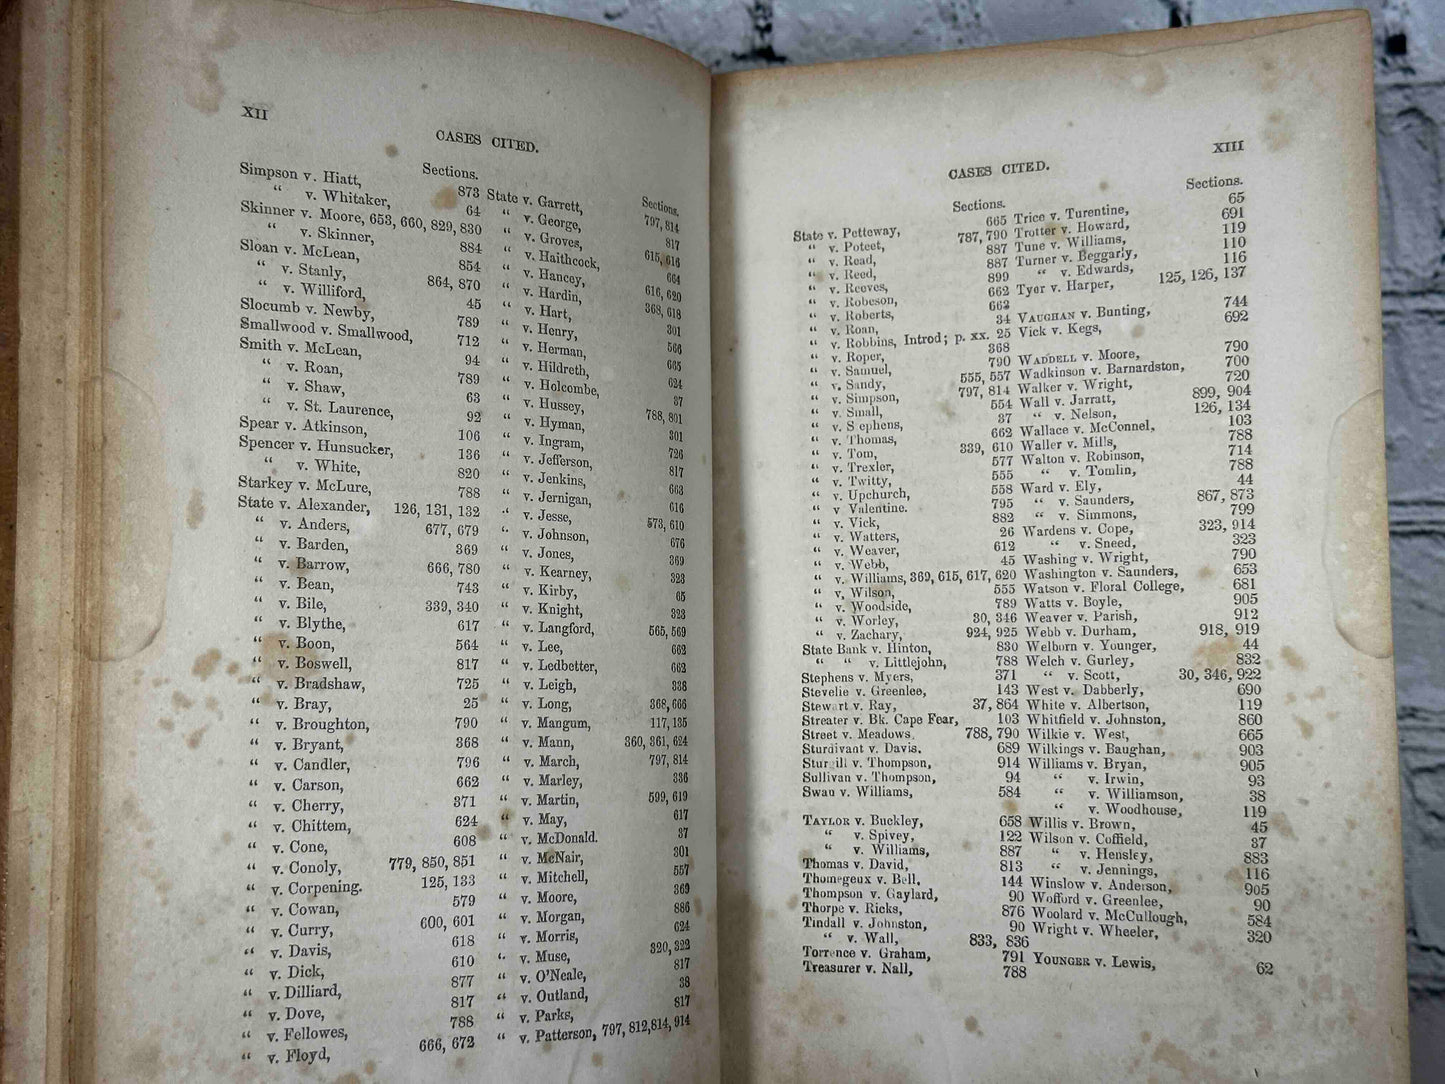 XII
CASES CITED.
Sections.
Simpson v. Hiatt, 873
“ v. Whitaker, 64
Skinner v. Moore, 653, 660, 829, 830
“ v. Skinner, 884
Sloan v. McLean, 854
“ v. Stanly, 864, 870
“ v. Williford, 45
Slocumb v. Newby, 789
Smallwood v. Smallwood, 712
Smith v. McLean, 94
“ v. Roan, 789
“ v. Shaw, 63
“ v. St. Laurence, 92
Spear v. Atkinson, 106
Spencer v. Hunsucker, 136
“ v. White, 820
Starkey v. McLure, 788
State v. Alexander, 126, 131, 132
“ v. Anders, 677, 679
“ v. Barden, 369
“ v. Barrow, 666, 780
“ v. Bean, 743
“ v. Bile, 339, 340
“ v. Blythe, 617
“ v. Boon, 564
“ v. Boswell, 817
“ v. Bradshaw, 725
“ v. Bray, 25
“ v. Broughton, 790
“ v. Bryant, 368
“ v. Candler, 796
“ v. Carson, 662
“ v. Cherry, 371
“ v. Chittem, 624
“ v. Cone, 608
“ v. Conoly, 779, 850, 851
“ v. Corpening. 125, 133
“ v. Cowan, 579
“ v. Curry, 600, 601
“ v. Davis, 618
“ v. Dick, 610
“ v. Dilliard, 877
“ v. Dove, 817
“ v. Fellowes, 788
“ v. Floyd, 666, 672
Sections.
State v. Garrett, 797, 814
“ v. George, 817
“ v. Groves, 615, 616
“ v. Haithcock, 664
“ v. Hancey, 616, 620
“ v. Hardin, 368, 618
“ v. Hart, 301
“ v. Henry, 566
“ v. Herman, 665
“ v. Hildreth, 624
“ v. Holcombe, 37
“ v. Hussey, 788, 801
“ v. Hyman, 301
“ v. Ingram, 726
“ v. Jefferson, 817
“ v. Jenkins, 663
“ v. Jernigan, 616
“ v. Jesse, 573, 610
“ v. Johnson, 676
“ v. Jones, 369
“ v. Kearney, 323
“ v. Kirby, 65
“ v. Knight, 323
“ v. Langford, 565, 569
“ v. Lee, 662
“ v. Ledbetter, 662
“ v. Leigh, 338
“ v. Long, 368, 666
“ v. Mangum, 117, 135
“ v. Mann, 360, 361, 624
“ v. March, 797, 814
“ v. Marley, 336
“ v. Martin, 599, 619
“ v. May, 617
“ v. McDonald. 37
“ v. McNair, 301
“ v. Mitchell, 557
“ v. Moore, 369
“ v. Morgan, 886
“ v. Morris, 624
“ v. Muse, 320, 322
“ v. O'Neale, 817
“ v. Outland, 38
“ v. Parks, 817
“ v. Patterson, 797, 812, 814, 914
XIII
CASES CITED.
Sections.
State v. Petteway, 665
“ v. Poteet, 787, 790
“ v. Read, 887
“ v. Reed, 887
“ v. Reeves, 899
“ v. Robeson, 662
“ v. Roberts, 662
“ v. Roan, 34
“ v. Robbins, Introd; p. xx. 25
“ v. Roper, 368
“ v. Samuel, 790
“ v. Sandy, 555, 557
“ v. Simpson, 797, 814
“ v. Small, 554
“ v. S ephens, 37
“ v. Thomas, 662
“ v. Tom, 339, 610
“ v. Trexler, 577
“ v. Twitty, 555
“ v. Upchurch, 558
“ v. Valentine. 795
“ v. Vick, 882
“ v. Watters, 26
“ v. Weaver, 612
“ v. Webb, 45
“ v. Williams, 369, 615, 617, 620
“ v, Wilson, 555
“ v. Woodside, 789
“ v. Worley, 30, 346
“ v. Zachary, 924, 925
State Bank v. Hinton, 830
“ “ v. Littlejohn, 788
Stephens v. Myers, 371
Stevelie v. Greenlee, 143
Stewart v. Ray, 37, 864
Streater v. Bk. Cape Fear, 103
Street v. Meadows. 788, 790
Sturdivant v. Davis. 689
Sturgill v. Thompson, 914
Sullivan v. Thompson, 94
Swan v. Williams, 584
TAYLOR v. Buckley, 658
“ v. Spivey, 122
“ v. Williams, 887
Thomas v. David, 813
Thomegeux v. Bell, 144
Thompson v. Gaylard, 90
Thorpe v. Ricks, 876
Tindall v. Johnston, 90
“ v. Wall, 833, 836
Torrence v. Graham, 791
Treasurer v. Nall, 788
Sections.
Trice v. Turentine, 65
Trotter v. Howard, 691
Tune v. Williams, 119
Turner v. Beggarly, 110
“ v. Edwards, 116
Tyer v. Harper, 125, 126, 137
VAUGHAN v. Bunting, 744
Vick v. Kegs, 692
WADDELL v. Moore, 790
Wadkinson v. Barnardston, 700
Walker v. Wright, 720
Wall v. Jarratt, 899, 904
“ v. Nelson, 126, 134
Wallace v. McConnel, 103
Waller v. Mills, 788
Walton v. Robinson, 714
“ v. Tomlin, 788
Ward v. Ely, 44
“ v. Saunders, 867, 873
“ v. Simmons, 799
Wardens v. Cope, 323, 914
“ v. Sneed, 323
Washing v. Wright, 790
Washington v. Saunders, 653
Watson v. Floral College, 681
Watts v. Boyle, 905
Weaver v. Parish, 912
Webb v. Durham, 918, 919
Welborn v. Younger, 44
Welch v. Gurley, 832
“ v. Scott, 30, 346, 922
West v. Dabberly, 690
White v. Albertson, 119
Whitfield v. Johnston, 860
Wilkie v. West, 665
Wilkings v. Baughan, 903
Williams v. Bryan, 905
“ v. Irwin, 93
“ v. Williamson, 38
“ v. Woodhouse, 119
Willis v. Brown, 45
Wilson v. Coffield, 37
“ v. Hensley, 883
“ v. Jennings, 116
Winslow v. Anderson, 905
Wofford v. Greenlee, 90
Woolard v. McCullough, 584
Wright v. Wheeler, 320
YOUNGER v. Lewis, 62